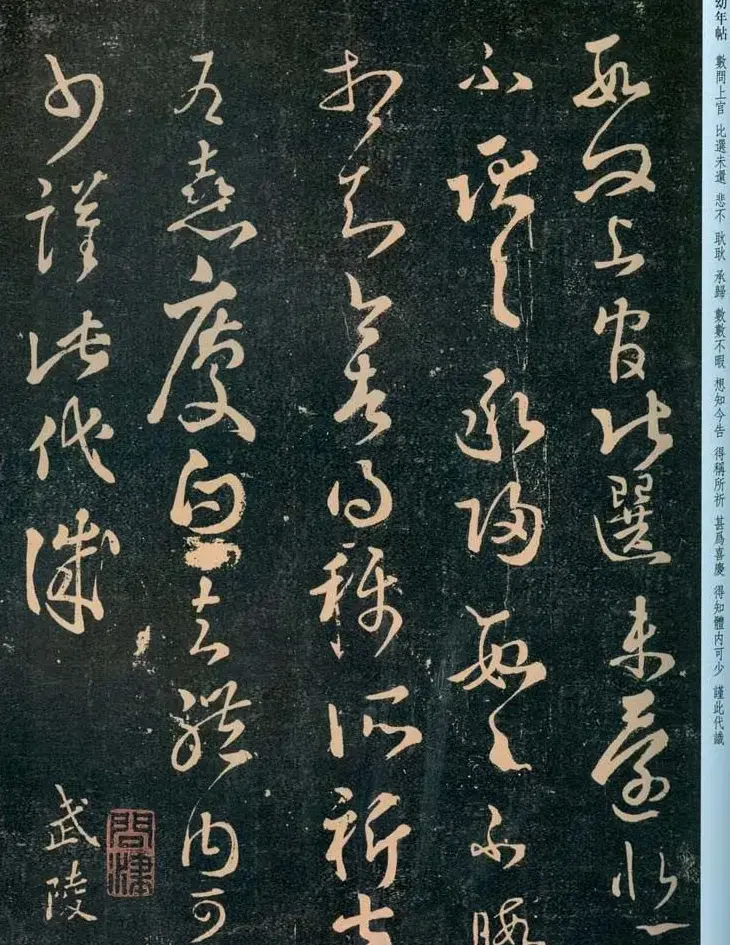 幼年帖 數問上官 比選未還 悲不 耿耿 承歸 數數不暇 想知今告 得稱所祈 甚爲喜慶 得知體内可少 謹此代識
數問上官比選未還
不耿耿承歸數數不暇
想知今告得稱所祈甚
爲喜慶得知體内可
少謹此代識
武陵
問津